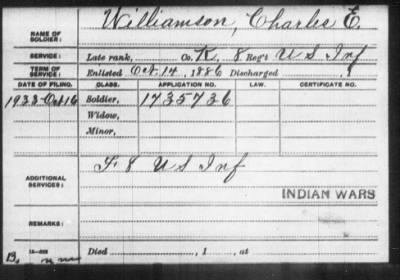 NAME OF SOLDIER: Williamson, Charles E.
SERVICE: Late rank, Co. K, 8 Reg't U S Inf
TERM OF SERVICE: Enlisted Oct. 14, 1886 Discharged , 1
DATE OF FILING. CLASS. APPLICATION NO. LAW. CERTIFICATE NO.
1933-Oct 16 Soldier, 1735736
Widow,
Minor,
ADDITIONAL SERVICES: F. 8 U S Inf
INDIAN WARS
REMARKS:
Died , 1 , at